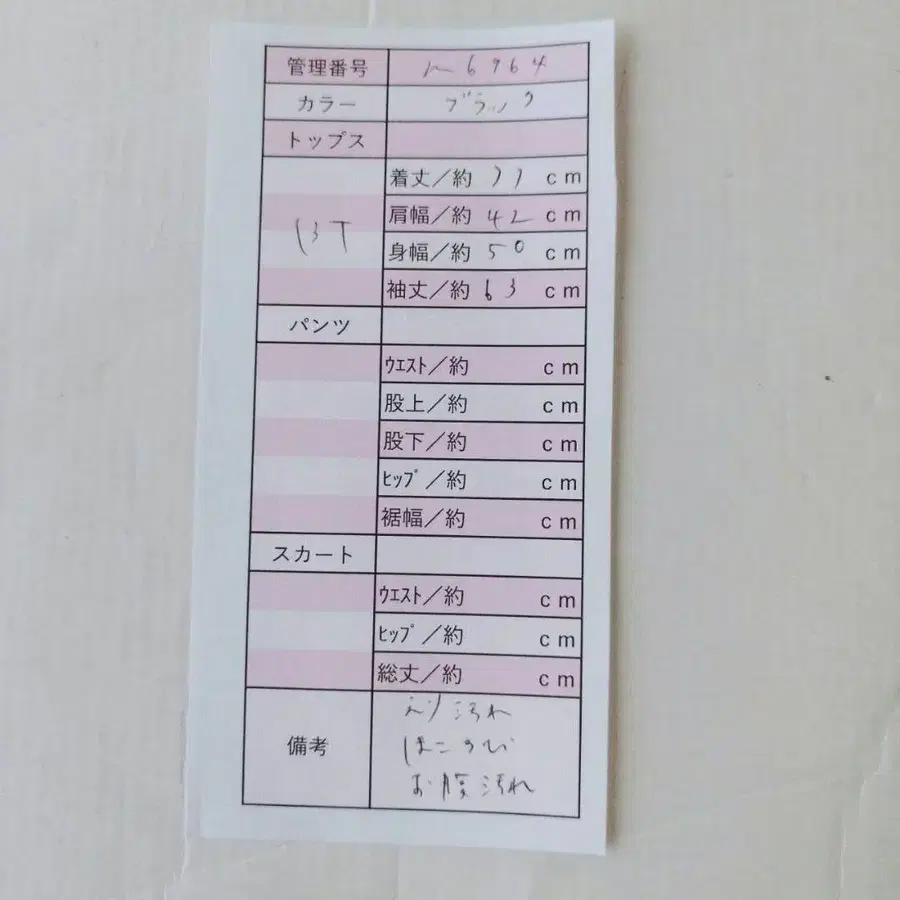 管理番号 m6964
カラー ブラック
トップス
着丈／約 77 cm
肩幅／約 42 cm
身幅／約 50 cm
袖丈／約 63 cm
パンツ
ｳｴｽﾄ／約 cm
股上／約 cm
股下／約 cm
ﾋｯﾌﾟ／約 cm
裾幅／約 cm
スカート
ｳｴｽﾄ／約 cm
ﾋｯﾌﾟ／約 cm
総丈／約 cm
備考
えり汚れ
お腹汚れ